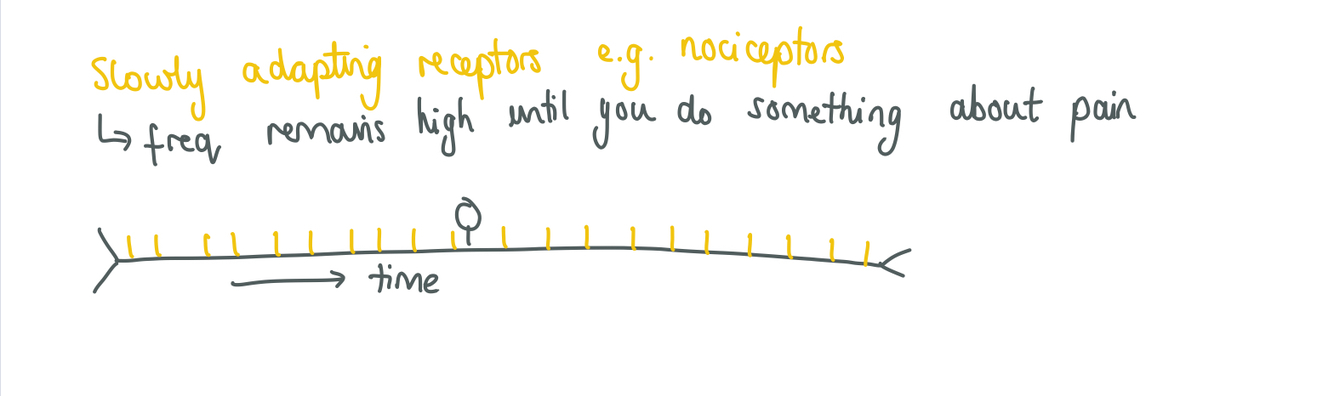 Slowly adapting receptors e.g. nociceptors
↳ freq remains high until you do something about pain
→ time